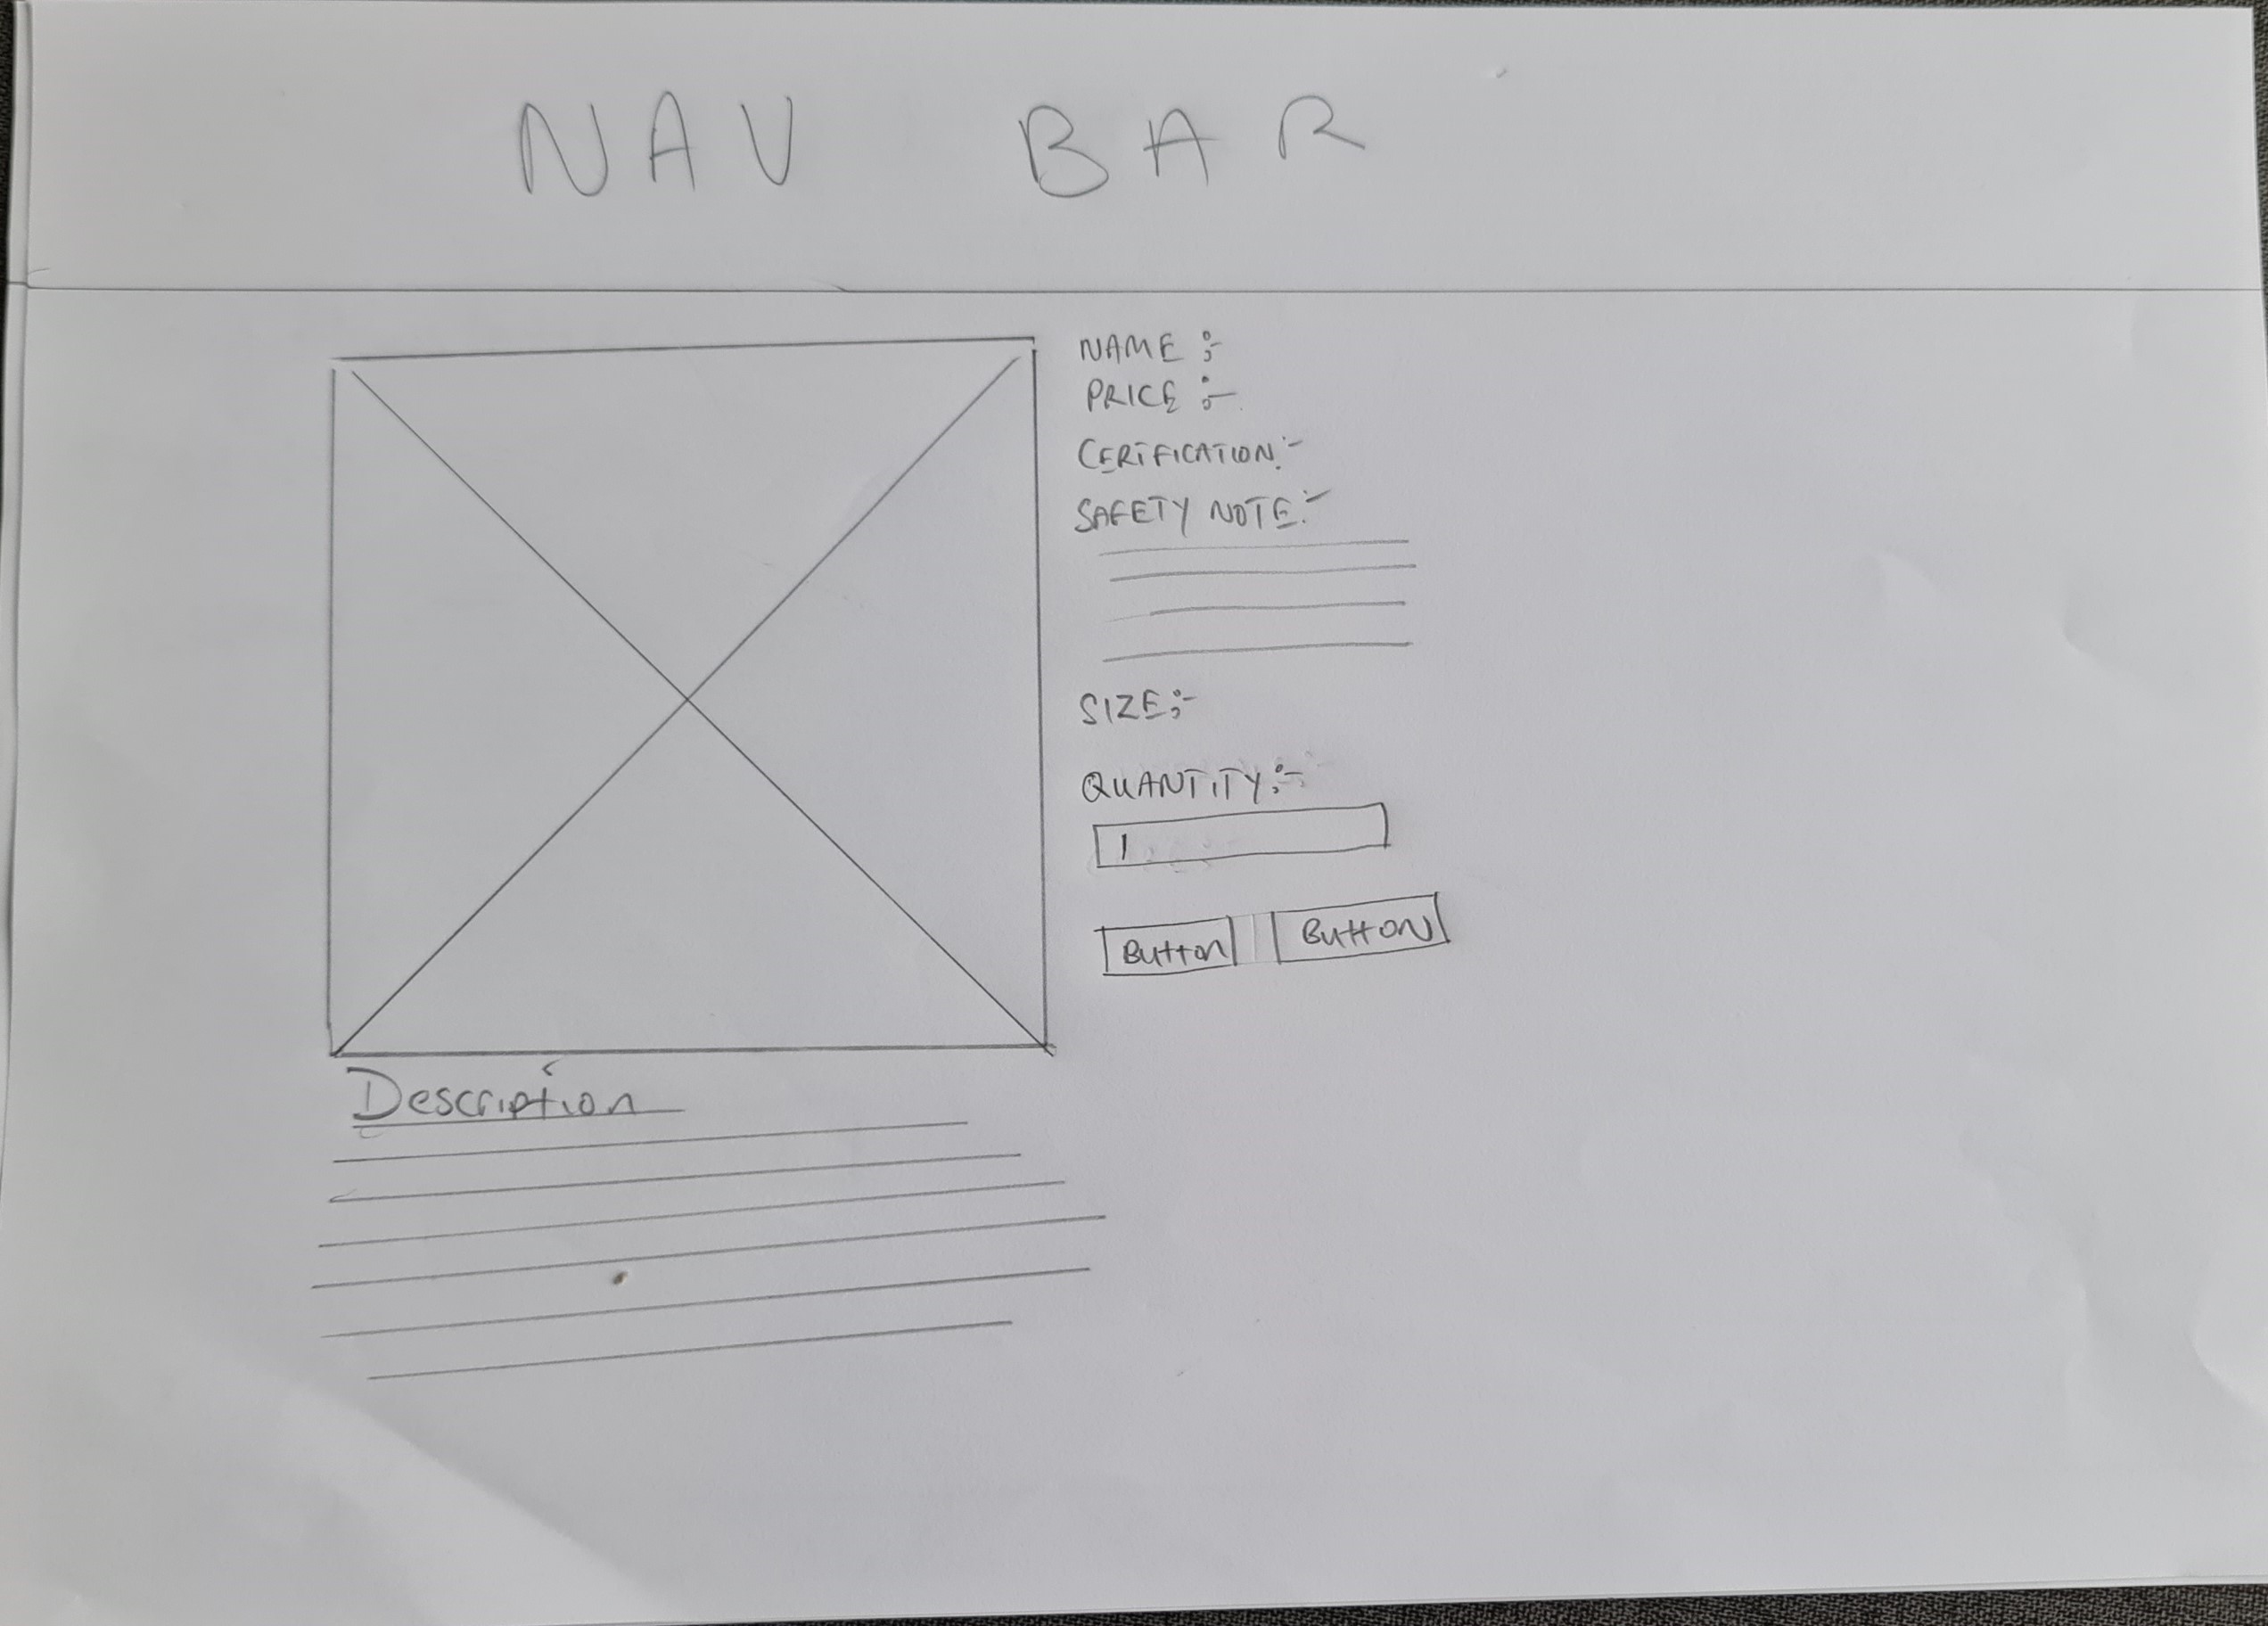 NAV BAR
NAME :-
PRICE :-
CERIFICATION:-
SAFETY NOTE:-
SIZE:-
QUANTITY:-
1
Button Button
Description